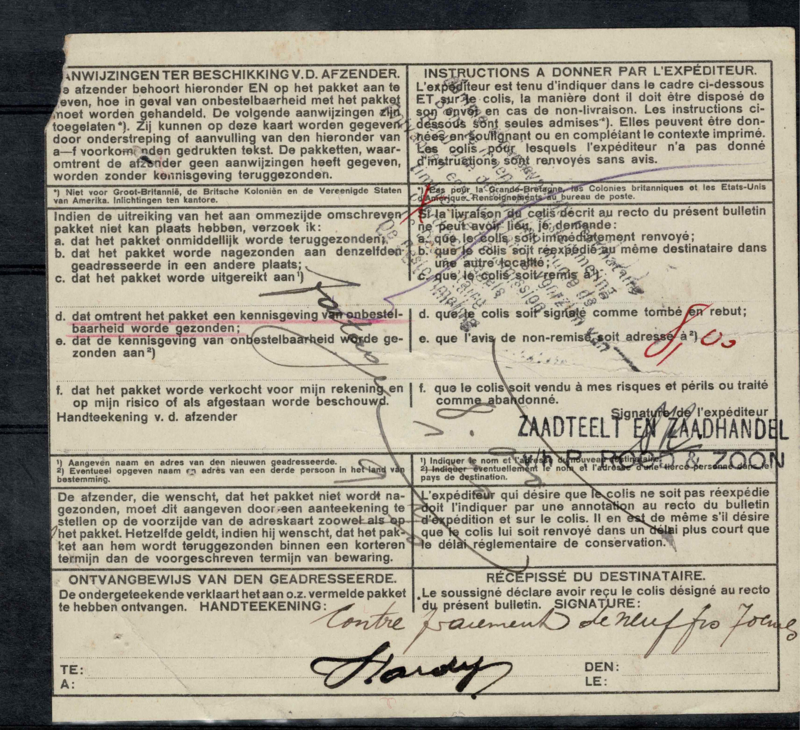 ANWIJZINGEN TER BESCHIKKING V. D. AFZENDER.
e afzender behoort hieronder EN op het pakket aan te
even, hoe in geval van onbestelbaarheid met het pakket
moet worden gehandeld. De volgende aanwijzingen zijn
toegelaten*). Zij kunnen op deze kaart worden gegeven
door onderstreping of aanvulling van den hieronder van
a—f voorkomenden gedrukten tekst. De pakketten, waar-
omtrent de afzender geen aanwijzingen heeft gegeven,
worden zonder kennisgeving teruggezonden.
*) Niet voor Groot-Britannië, de Britsche Koloniën en de Vereenigde Staten
van Amerika. Inlichtingen ten kantore.
Indien de uitreiking van het aan ommezijde omschreven
pakket niet kan plaats hebben, verzoek ik:
a. dat het pakket onmiddellijk worde teruggezonden;
b. dat het pakket worde nagezonden aan denzelfden
geadresseerde in een andere plaats;
c. dat het pakket worde uitgereikt aan¹)
d. dat omtrent het pakket een kennisgeving van onbestel-
baarheid worde gezonden;
e. dat de kennisgeving van onbestelbaarheid worde ge-
zonden aan²)
f. dat het pakket worde verkocht voor mijn rekening en
op mijn risico of als afgestaan worde beschouwd.
Handteekening v. d. afzender
1) Aangeven naam en adres van den nieuwen geadresseerde.
2) Eventueel opgeven naam en adres van een derde persoon in het land van
bestemming.
De afzender, die wenscht, dat het pakket niet wordt na-
gezonden, moet dit aangeven door een aanteekening te
stellen op de voorzijde van de adreskaart zoowel als op
het pakket. Hetzelfde geldt, indien hij wenscht, dat het pak-
ket aan hem wordt teruggezonden binnen een korteren
termijn dan de voorgeschreven termijn van bewaring.
INSTRUCTIONS A DONNER PAR L'EXPÉDITEUR.
L'expéditeur est tenu d'indiquer dans le cadre ci-dessous
ET sur le colis, la manière dont il doit être disposé de
son envoi en cas de non-livraison. Les instructions ci-
dessous sont seules admises*). Elles peuvent être don-
nées en soulignant ou en complétant le contexte imprimé.
Les colis pour lesquels l'expéditeur n'a pas donné
d'instructions sont renvoyés sans avis.
*) Pas pour la Grande-Bretagne, les Colonies britanniques et les Etats-Unis
d'Amérique. Renseignements au bureau de poste.
Si la livraison du colis décrit au recto du présent bulletin
ne peut avoir lieu, je demande:
a. que le colis soit immédiatement renvoyé;
b. que le colis soit réexpédié au même destinataire dans
une autre localité;
c. que le colis soit remis à¹)
d. que le colis soit signalé comme tombé en rebut;
e. que l'avis de non-remise soit adressé à²)
8,00
f. que le colis soit vendu à mes risques et périls ou traité
comme abandonné.
Signature de l'expéditeur
ZAADTEELT EN ZAADHANDEL
& ZOON
1) Indiquer le nom et l'adresse du nouveau destinataire.
2) Indiquer éventuellement le nom et l'adresse d'une tierce personne dans le
pays de destination.
L'expéditeur qui désire que le colis ne soit pas réexpédié
doit l'indiquer par une annotation au recto du bulletin
d'expédition et sur le colis. Il en est de même s'il désire
que le colis lui soit renvoyé dans un délai plus court que
le délai réglementaire de conservation.
ONTVANGBEWIJS VAN DEN GEADRESSEERDE.
De ondergeteekende verklaart het aan o.z. vermelde pakket
te hebben ontvangen. HANDTEEKENING:
RÉCÉPISSÉ DU DESTINATAIRE.
Le soussigné déclare avoir reçu le colis désigné au recto
du présent bulletin. SIGNATURE:
Contre paiement de neuf frs
Hardy
TE:
A:
DEN:
LE: